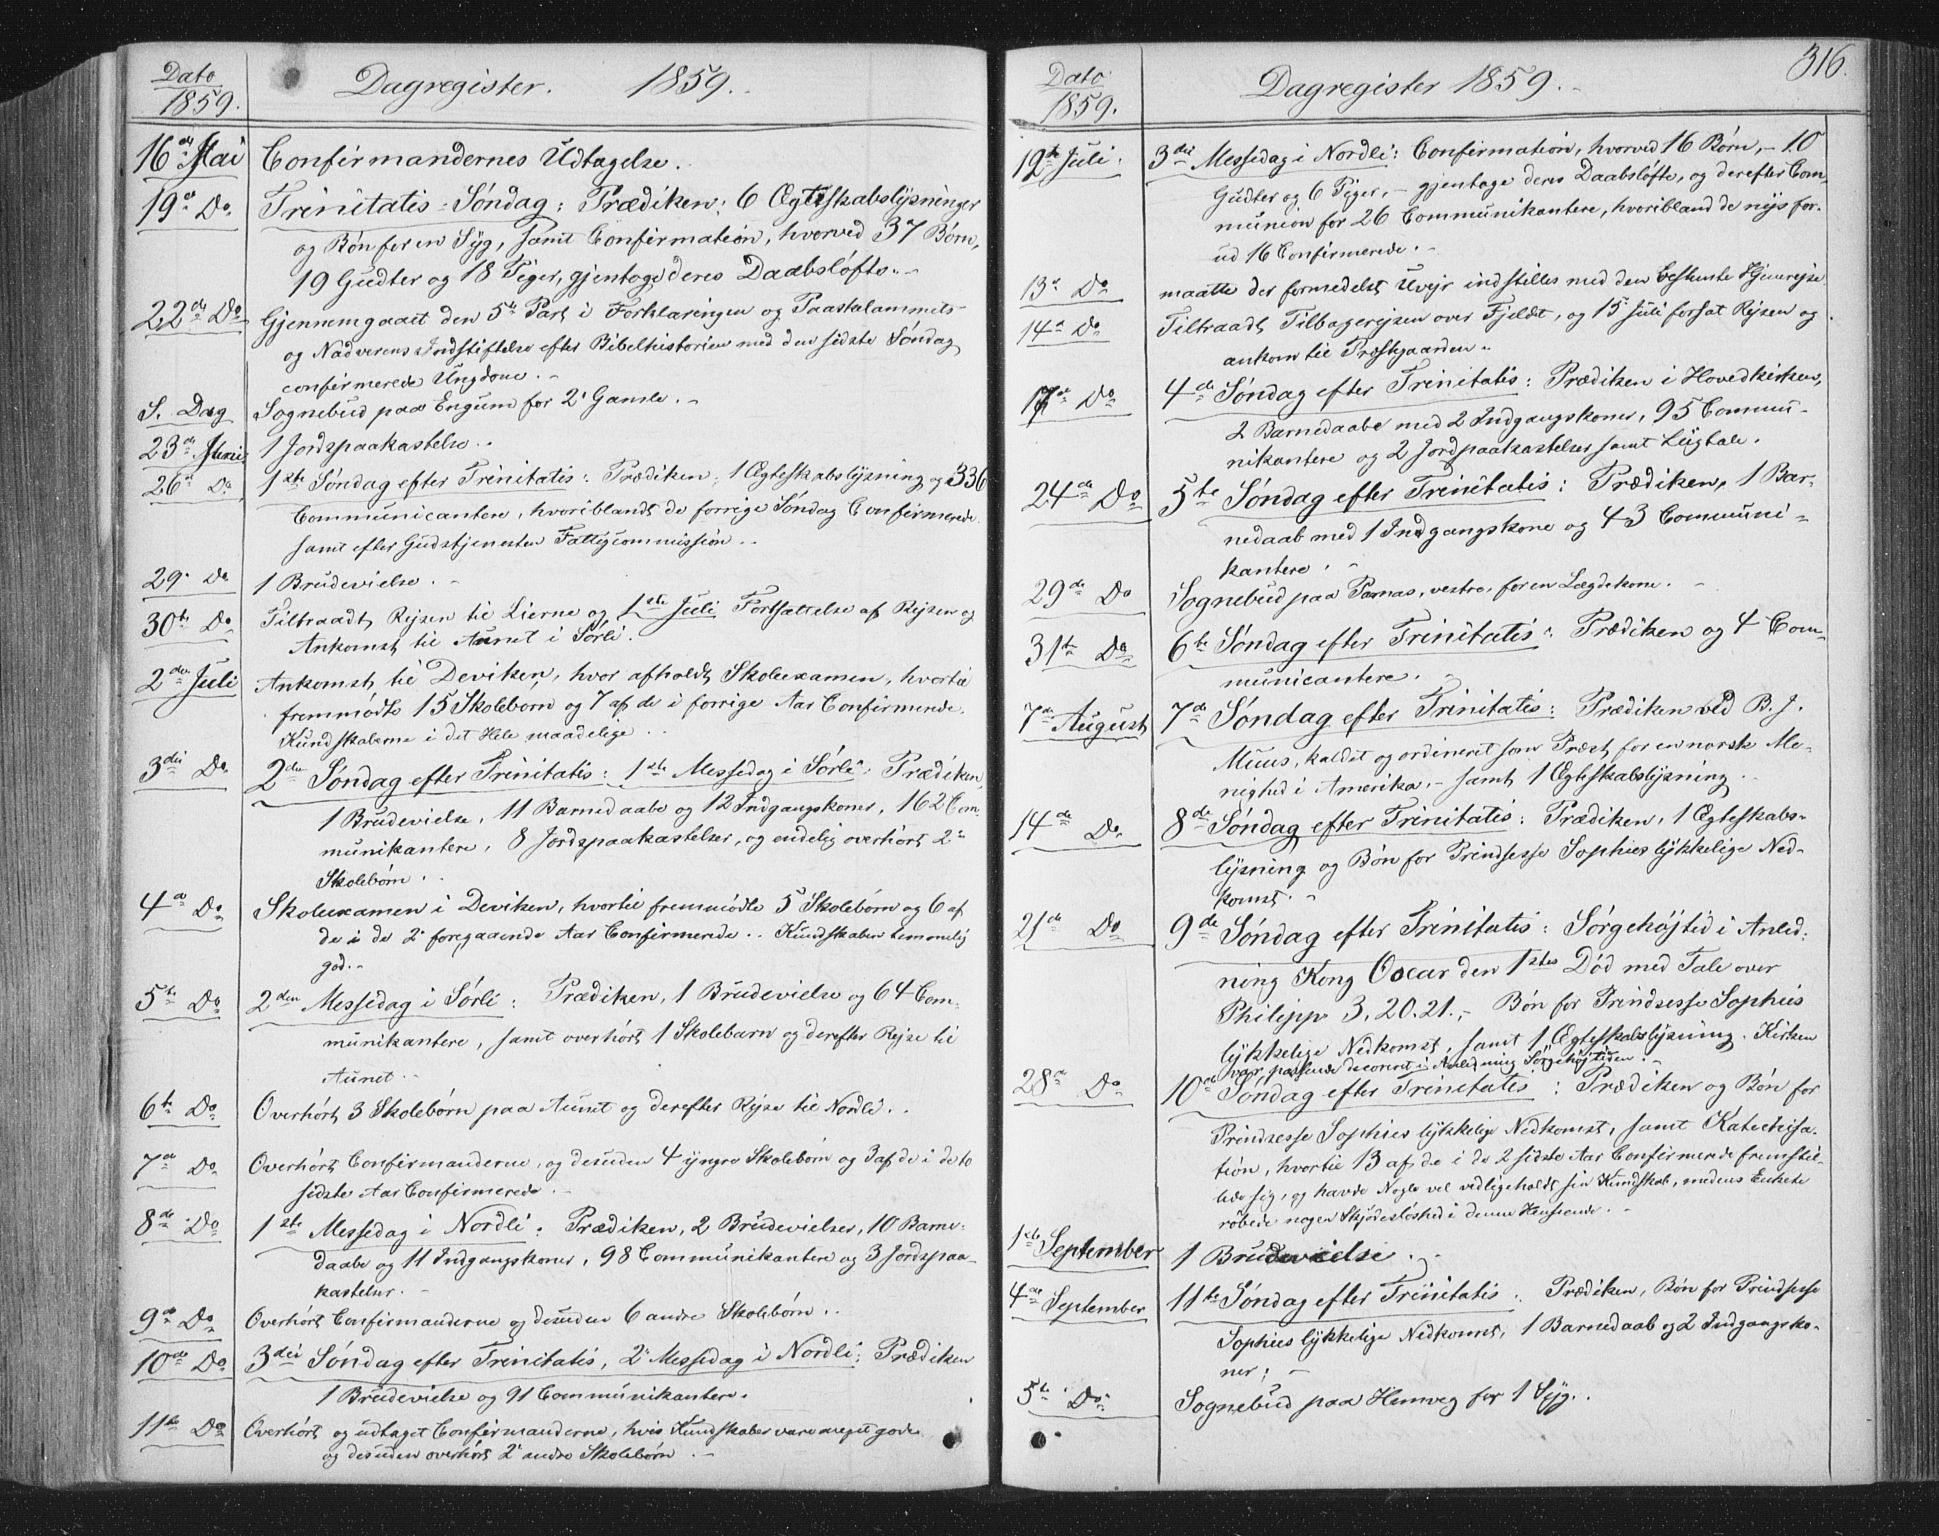 Dato
1859.
Dagregister. 1859.
16de Mai
Confirmandernes Udtagelse.
19de Do
Trinitatis-Søndag: Prædiken; 6 Ægteskabslysninger
og Bøn for en Syg, samt Confirmation, hvorved 37 Børn,
19 Gudter og 18 Piger, gjentoge deres Daabsløfte.-
22de Do
Gjennemgaaet den 5te Part i Forklaringen og Paaskelammets-
og Nadverens Indstiftelse efter Bibelhistorien med den sidste Søndag
confirmerede Ungdom.-
S. Dag
Sognebud paa Engum for 2 Gamle.-
23de Juni
1 Jordspaakastelse..
26de Do
1ste Søndag efter Trinitatis: Prædiken; 1 Ægteskabslysning og 336
Communicantere, hvoriblandt de forrige Søndag Confirmerede
samt efter Gudstjenesten Fattigcommission..
29. Do
1 Brudevielse.-
30te Do
Tiltraadt Rejsen til Lierne og 1ste Juli Fortsættelse af Rejsen og
Ankomst til Aunet i Sørli.
2den Juli
Ankomst til Deviken, hvor afholdt Skoleexamen, hvortil
fremmødte 15 Skolebørn og 7 af de i forrige Aar Confirmerede.
Kundskaberne i det Hele maadelige..
3die Do
2den Søndag efter Trinitatis: 1ste Messedag i Sørli: Prædiken,
1 Brudevielse, 11 Barnedaabe og 12 Indgangskoner, 162 Com-
munikantere, 8 Jordspaakastelser, og endelig overhørt 2
Skolebørn.
4de Do
Skoleexamen i Deviken, hvortil fremmødte 5 Skolebørn og 6 af
de i de 2 foregaaende Aar Confirmerede.. Kundskaben temmelig
god.-
5te Do
2den Messedag i Sørli: Prædiken, 1 Brudevielse og 64 Com-
munikantere, samt overhørt 1 Skolebarn og derefter Rejse til
Aunet.-
6te Do
Overhørt 3 Skolebørn paa Aunet og derefter Rejse til Nordli..
7de Do
Overhørt Confirmanderne, og desuden 4 yngre Skolebørn og 3 af de i de to
sidste Aar Confirmerede.-
8de Do
1ste Messedag i Nordli: Prædiken, 2 Brudevielser, 10 Barne-
daabe og 11 Indgangskoner, 98 Communikantere og 3 Jordspaa-
kastelser.-
9de Do
Overhørt Confirmanderne og desuden 6 andre Skolebørn..
10de Do
3die Søndag efter Trinitatis, 2. Messedag i Nordli: Prædiken
1 Brudevielse og 91 Communikantere.
11te Do
Overhørt og udtaget Confirmanderne, hvis Kundskaber vare meget gode
og desuden overhørt 2 andre Skolebørn.-
316.
Dato
1859.
Dagregister 1859.-
12te Juli.
3die Messedag i Nordli: Confirmation, hvorved 16 Børn,- 10
Gudter og 6 Piger,- gjentoge deres Daabsløfte, og derefter Com-
munion for 26 Communikantere, hvoribland de nys for-
ud 16 Confirmerede.-
13de Do
maatte der formedelst Uvejr indstilles med den Hjemrejse
14de Do
Tiltraadt Tilbagerejsen over Fjeldt, og 15 Juli forsat Rejsen og
ankom til Præstgaarden.
17de Do
4de Søndag efter Trinitatis: Prædiken i Hovedkirken,
2 Barnedaabe med 2 Indgangskoner, 95 Commu-
nikantere og 2 Jordspaakastelser samt Ligtale.
24de Do
5te Søndag efter Trinitatis: Prædiken, 1 Bar-
nedaab med 1 Indgangskone og 43 Communi-
kantere.-
29de Do
Sognebud paa Parnas, vestre, for en Lægdekone.-
31te Do
6te Søndag efter Trinitatis: Prædiken og 4 Com-
municantere.-
7de August
7de Søndag efter Trinitatis: Prædiken ved B. J.
Muus, kaldet og ordineret som Præst for en norsk Me-
nighed i Amerika,- samt 1 Ægteskabslysning.
14de Do.
8de Søndag efter Trinitatis: Prædiken, 1 Ægteskabs-
lysning og Bøn for Prindsesse Sophies lykkelige Ned-
komst.-
21de Do
9de Søndag efter Trinitatis: Sørgehøjtid i Anled-
ning Kong Oscar den 1stes Død med Tale over
Philipp 3, 20.21.,- Bøn for Prindsesse Sophies
lykkelige Nedkomst, samt 1 Ægteskabslysning. Kirken
var passende decoreret i Anledning Sørgehøjtiden.-
28de Do
10de Søndag efter Trinitatis: Prædiken og Bøn for
Prindsesse Sophies lykkelige Nedkomst, samt Katechisa-
tion, hvortil 13 af de i de 2 sidste Aar Confirmerede fremstil-
lede sig, og havde Nogle vel vedligeholdt sin Kundskab, medens Enkelte
røbede nogen Skjødesløshed i denne Henseende.-
1ste September
1 Brudevielse.-
4de September
11te Søndag efter Trinitatis: Prædiken, Bøn for Prindsesse
Sophies lykkelige Nedkomst, 1 Barnedaab og 2 Indgangsko-
ner;-
5te Do
Sognebud paa Hemveg for 1 Syg..